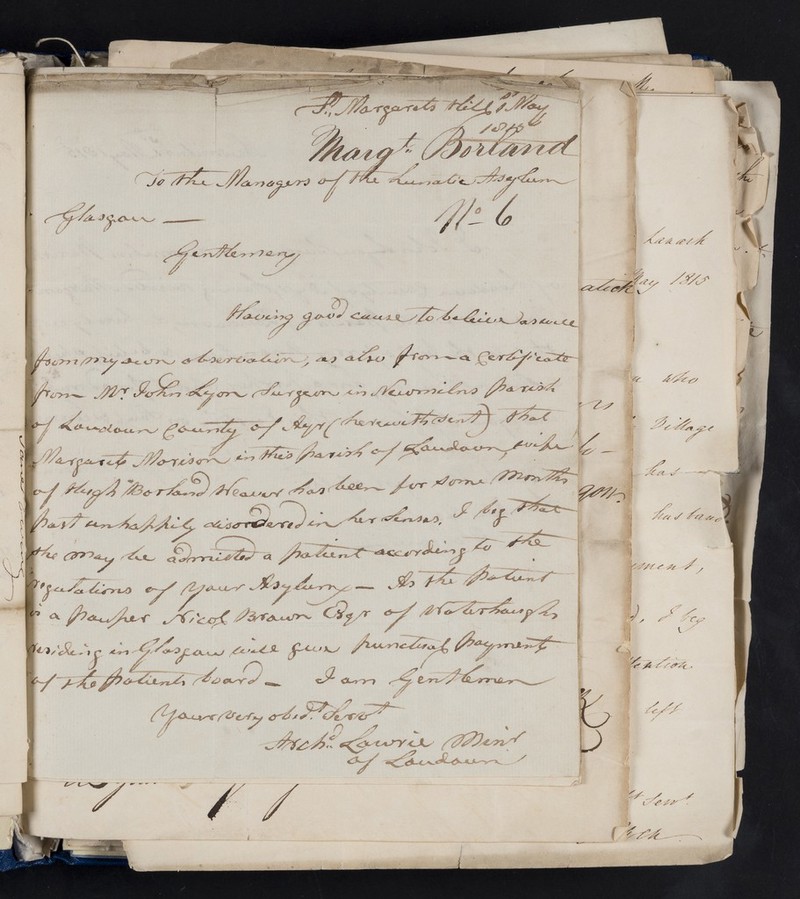 St. Margarets Hill 8 May
1815
Margt. Borland
To the Managers of the Lunatic Asylum
Glasgow —
No 6
Gentlemen
Having good cause to believe as well
from my own observation, as also from a Certificate
from Mr. John Lyon Surgeon in Newmilns parish
of Loudoun County of Ayr (herewith sent) that
Margaret Morison in this parish of Loudoun, wife
of Hugh Borland Weaver has been for some Months
past unhappily disordered in her senses. I beg that
she may be admitted a patient according to the
regulations of your Asylum — As the patient
is a pauper Nicol Brown Esqr of Waterhaughs
residing in Glasgow will give punctual payment
of the patients board — I am Gentlemen
Your very obedt. Servt
Archd. Lawrie Minr
of Loudoun
May 1815
who
Village
has
husband
ment,
I beg
left
Servt